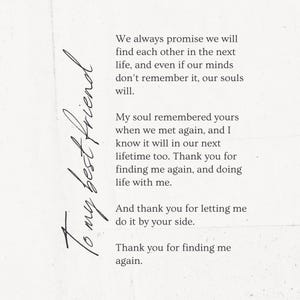 To my best friend
We always promise we will
find each other in the next
life, and even if our minds
don't remember it, our souls
will.
My soul remembered yours
when we met again, and I
know it will in our next
lifetime too. Thank you for
finding me again, and doing
life with me.
And thank you for letting me
do it by your side.
Thank you for finding me
again.